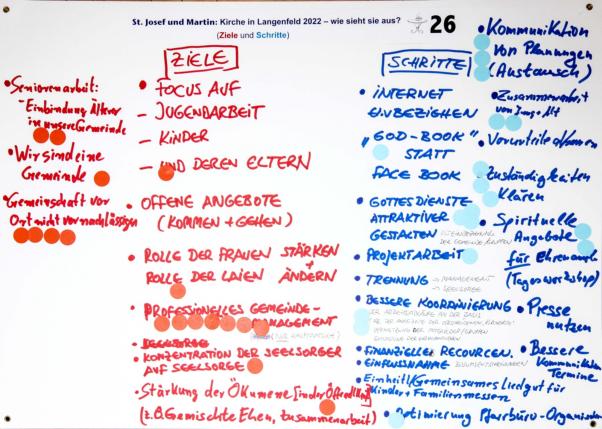 St. Josef und Martin: Kirche in Langenfeld 2022 – wie sieht sie aus?
(Ziele und Schritte)
26
ZIELE
• FOCUS AUF
– JUGENDARBEIT
– KINDER
– UND DEREN ELTERN
• OFFENE ANGEBOTE
(KOMMEN + GEHEN)
• ROLLE DER FRAUEN STÄRKEN
+
ROLLE DER LAIEN ÄNDERN
• PROFESSIONELLES GEMEINDE-
MANAGEMENT
• SEELSORGE
• KONZENTRATION DER SEELSORGER
AUF SEELSORGE
• Stärkung der Ökumene [in der Öffentlichkeit]
(z.B. Gemischte Ehen, Zusammenarbeit)
• Seniorenarbeit:
- Einbindung Älterer
in unsere Gemeinde
• Wir sind eine
Gemeinde
• Gemeinschaft vor
Ort nicht vernachlässigen
SCHRITTE
• INTERNET
EINBEZIEHEN
„GOD-BOOK“
STATT
FACE BOOK
• GOTTESDIENSTE
ATTRAKTIVER
GESTALTEN
• PROJEKTARBEIT
• TRENNUNG → MANAGEMENT
→ SEELSORGE
• BESSERE KOORDINIERUNG
• FINANZIELLE RECOURCEN.
• EINFLUSSNAHME
• Einheitl/Gemeinsames Liedgut für
Kinder + Familienmessen
• Optimierung Pfarrbüro-Organisation
• Kommunikation
von Planungen
(Austausch)
• Zusammenarbeit
von Jung + Alt
• Vorurteile abbauen
• Zuständigkeiten
klären
• Spirituelle
Angebote
für Ehrenamtl.
(Tagesworkshop)
• Presse
nutzen
• Bessere
Kommunikation
Termine